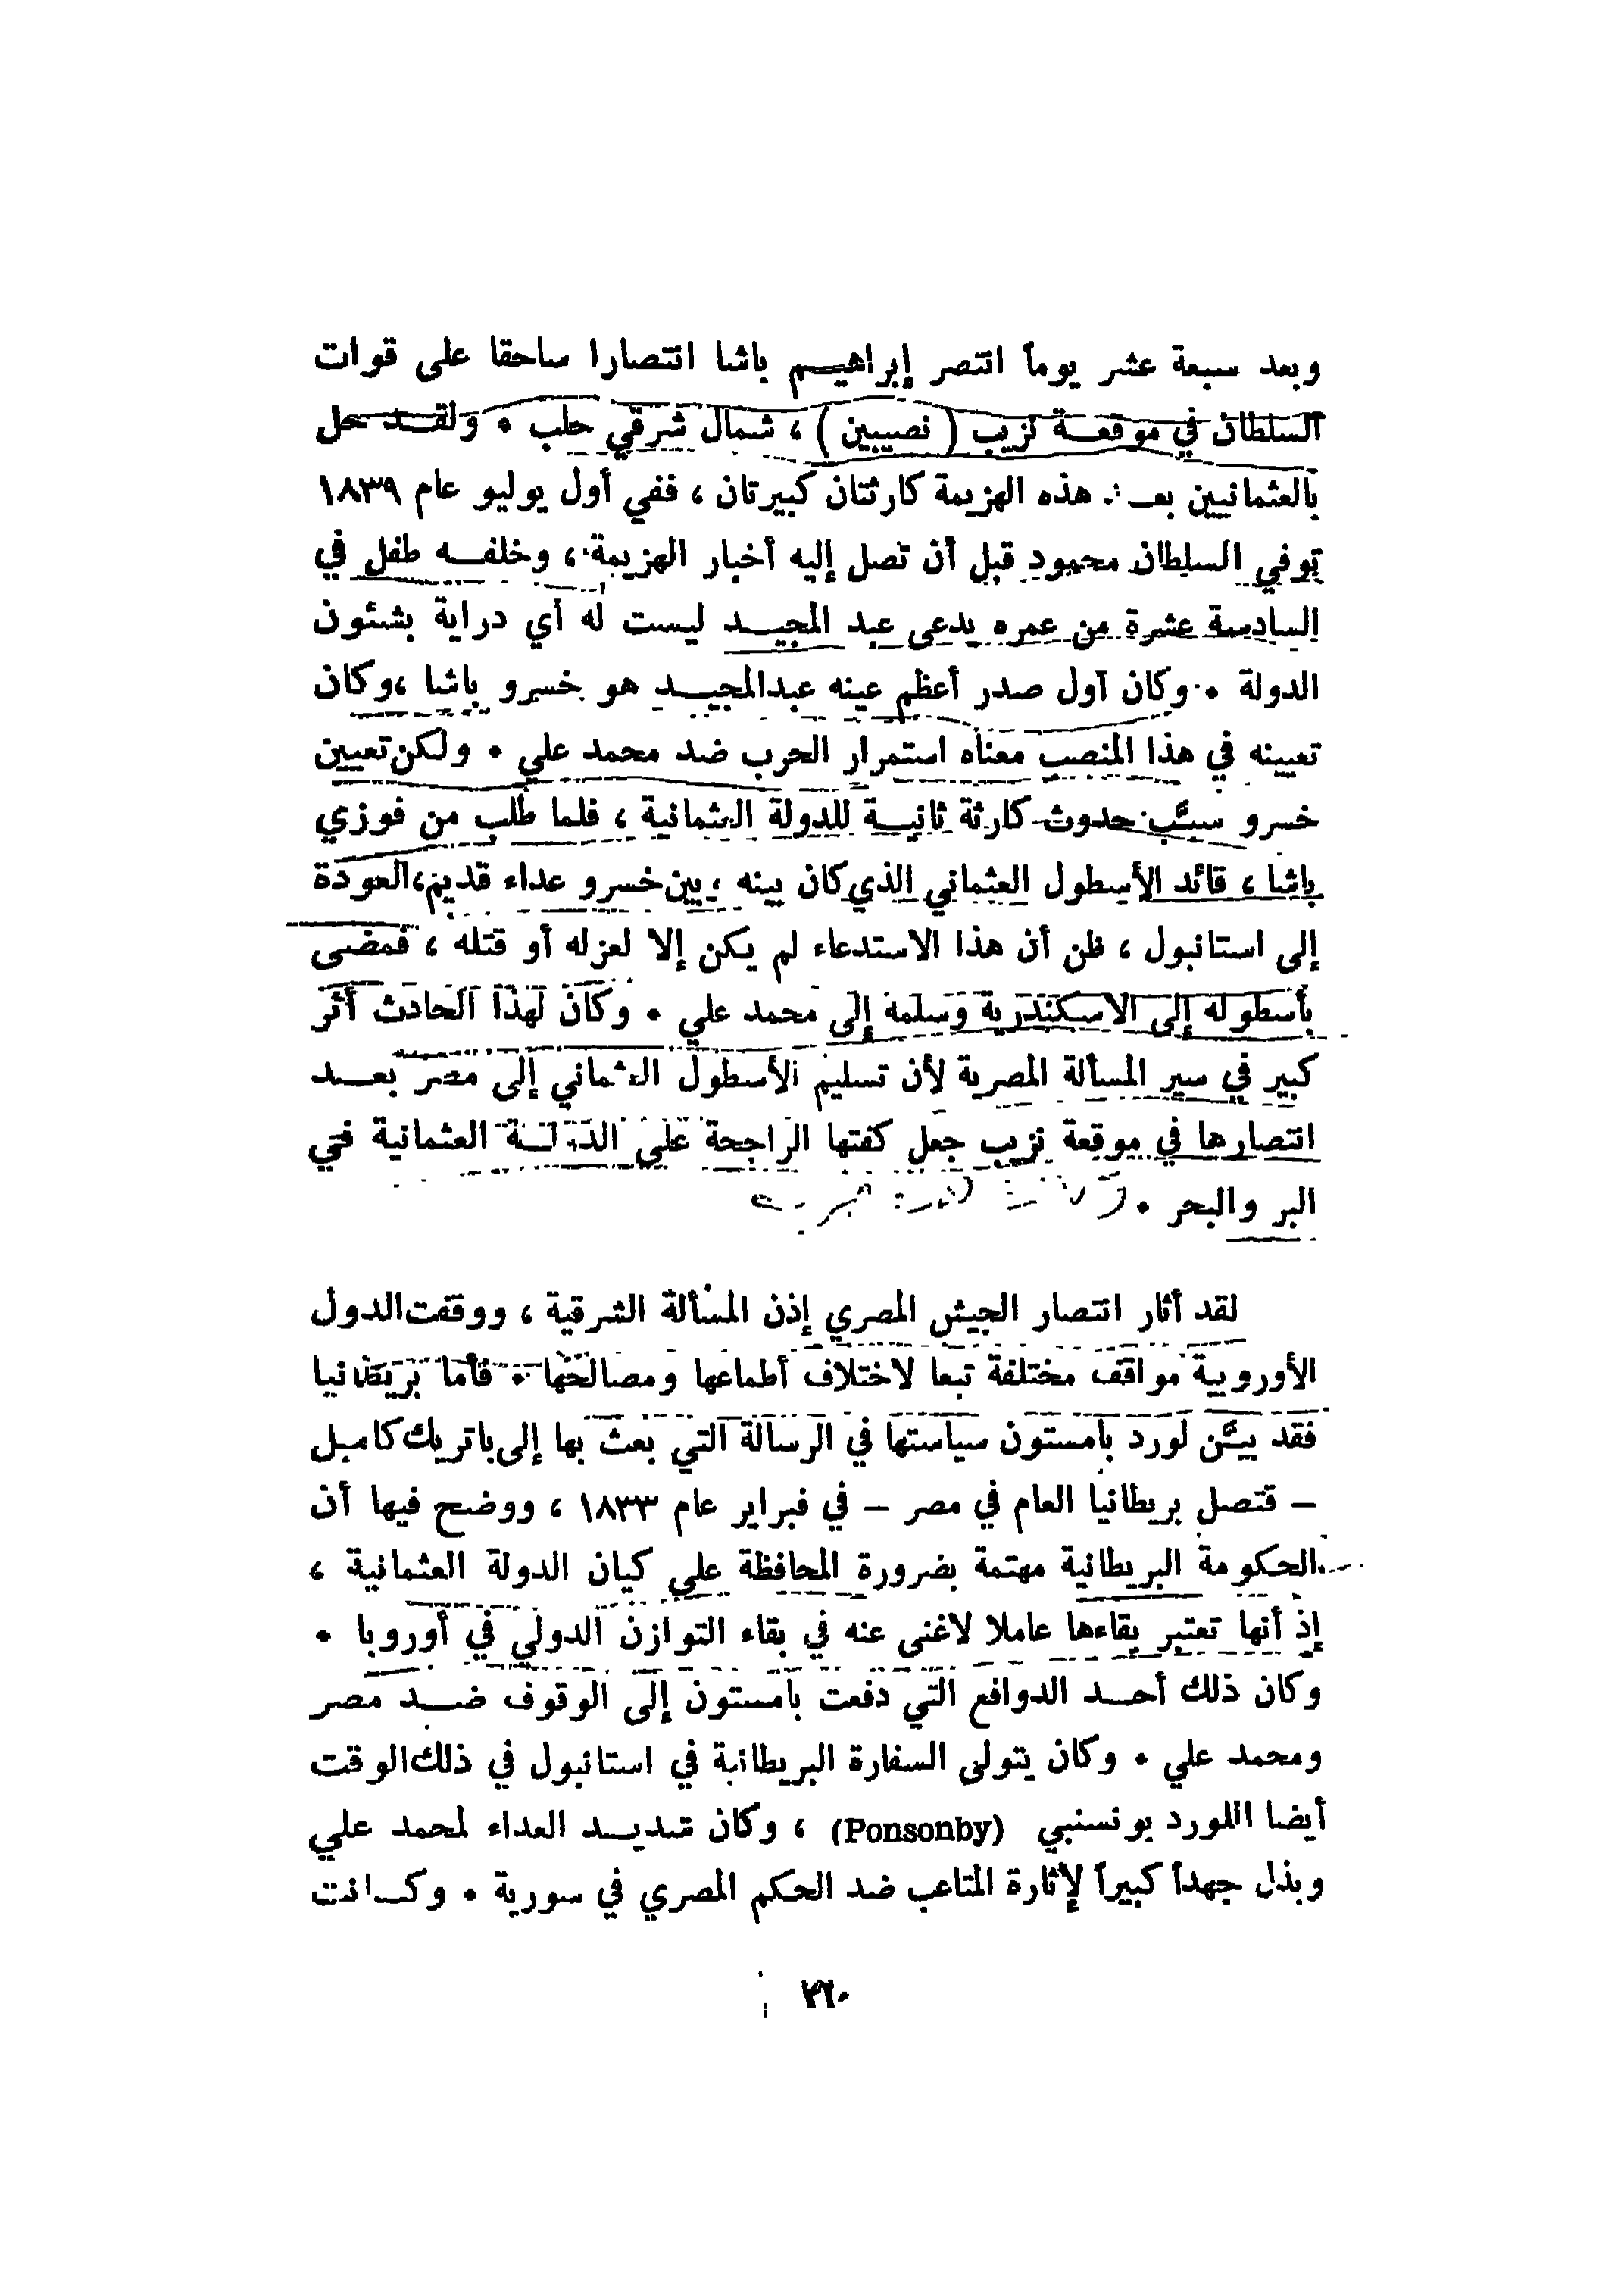 وبعد سبعة عشر يوماً انتصر إبراهيم باشا انتصارا ساحقا على قوات
السلطان في موقعة نزيب ( نصيبين ) ، شمال شرقي حلب . ولقد حل
بالعثمانيين بعد هذه الهزيمة كارثتان كبيرتان ، ففي أول يوليو عام ١٨٣٩
توفي السلطان محمود قبل أن تصل إليه أخبار الهزيمة ، وخلفه طفل في
السادسة عشرة من عمره يدعى عبد المجيد ليست له أي دراية بشئون
الدولة . وكان أول صدر أعظم عينه عبدالمجيد هو خسرو باشا ،وكان
تعيينه في هذا المنصب معناه استمرار الحرب ضد محمد علي . ولكن تعيين
خسرو سبَّب حدوث كارثة ثانية للدولة العثمانية ، فلما طلب من فوزي
باشا ، قائد الأسطول العثماني الذي كان بينه وبين خسرو عداء قديم، العودة
إلى استانبول ، ظن أن هذا الاستدعاء لم يكن إلا لعزله أو قتله ، فمضى
بأسطوله إلى الاسكندرية وسلمه إلى محمد علي . وكان لهذا الحادث أثر
كبير في سير المسألة المصرية لأن تسليم الأسطول العثماني إلى مصر بعد
انتصارها في موقعة نزيب جعل كفتها الراجحة على الدولة العثمانية في
البر والبحر .
لقد أثار انتصار الجيش المصري إذن المسألة الشرقية ، ووقفت الدول
الأوروبية مواقف مختلفة تبعا لاختلاف أطماعها ومصالحها . فأما بريطانيا
فقد بيَّن لورد بامستون سياستها في الرسالة التي بعث بها إلى باتريك كامبل
– قنصل بريطانيا العام في مصر – في فبراير عام ١٨٣٣ ، ووضح فيها أن
الحكومة البريطانية مهتمة بضرورة المحافظة على كيان الدولة العثمانية ،
إذ أنها تعتبر بقاءها عاملا لاغنى عنه في بقاء التوازن الدولي في أوروبا .
وكان ذلك أحد الدوافع التي دفعت بامستون إلى الوقوف ضد مصر
ومحمد علي . وكان يتولى السفارة البريطانية في استانبول في ذلك الوقت
أيضا اللورد بونسنبي (Ponsonby) ، وكان شديد العداء لمحمد علي
وبذل جهداً كبيراً لإثارة المتاعب ضد الحكم المصري في سورية . وكانت